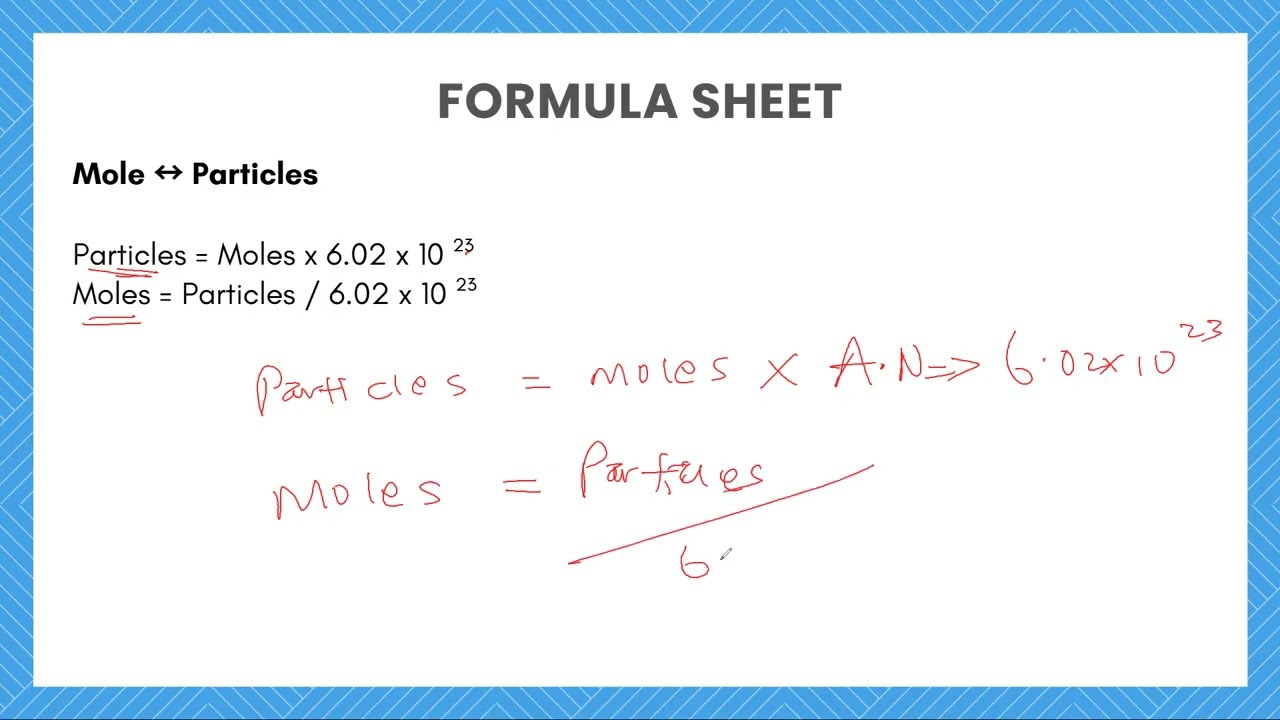 FORMULA SHEET
Mole ↔ Particles
Particles = Moles x 6.02 x 10 ²³
Moles = Particles / 6.02 x 10 ²³
Particles = moles × A.N => 6.02×10²³
Moles = Particles
6